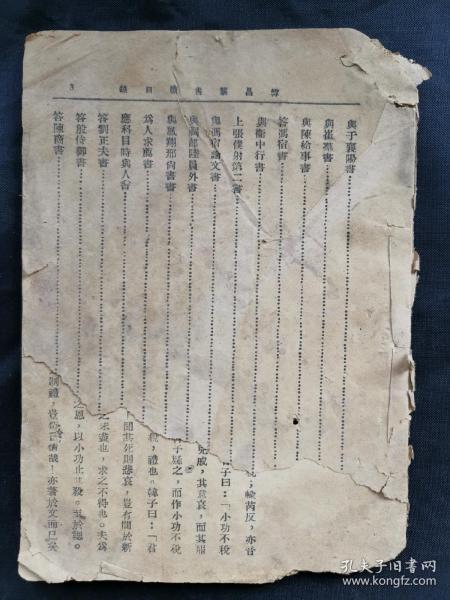 韓昌黎書牘目錄 3
與于襄陽書
與崔羣書
與陳給事書
答馮宿書
與衛中行書
上張僕射第二書
與馮宿論文書
與祠部陸員外書
與鳳翔邢尚書書
爲人求薦書
應科目時與人書
答劉正夫書
答殷侍御書
答陳商書
亦音
子曰：「小功不稅
其哀，而其服
子疑之，而作小功不稅
禮也。韓子曰：「君
聞其死則悲哀，豈有間於新
之未盡也，求之不得也。夫爲
之恩，以小功止
制禮，
亦著於文而已矣
孔夫子旧书网
book.kongfz.com